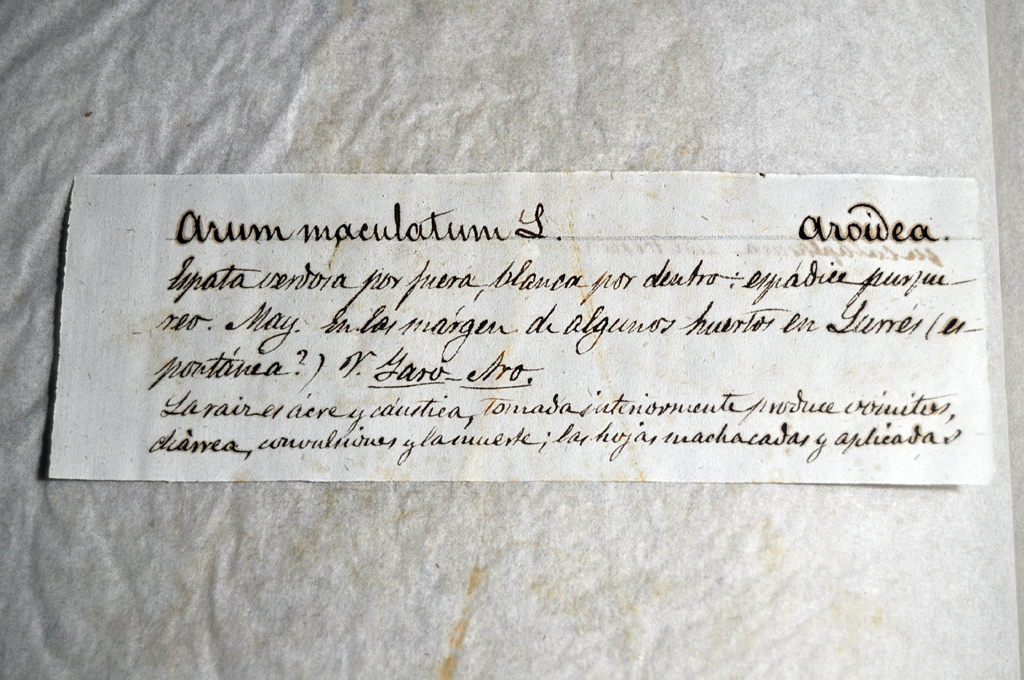 Arum maculatum L. Aroidea.
Espata verdosa por fuera, blanca por dentro: espádice purpu-
reo. May. En las márgen de algunos huertos en Larrés (es-
pontánea?) V. Jaro-Aro.
La raiz es ácre y cáustica, tomada interiormente produce vómitos,
diárrea, convulsiones y la muerte; las hojas machacadas y aplicadas